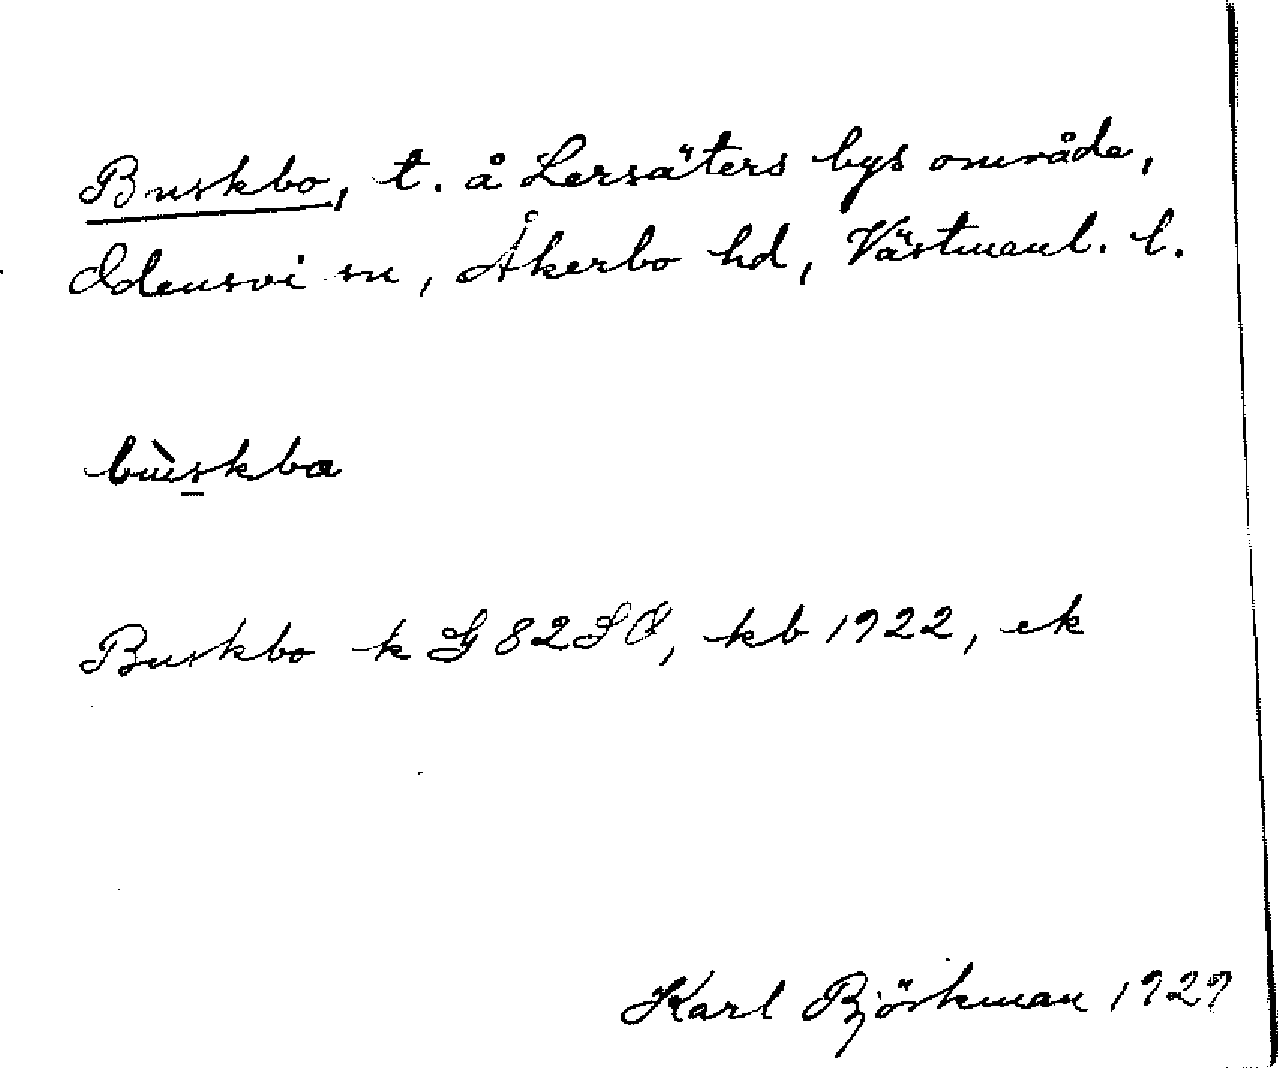 Buskbo, t. å Lersäters bys område,
Odensvi sn, Åkerbo hd, Västmanl. l.
bùskba
Buskbo k G 82 SO, kb 1922, ek
Karl Björkman 1929